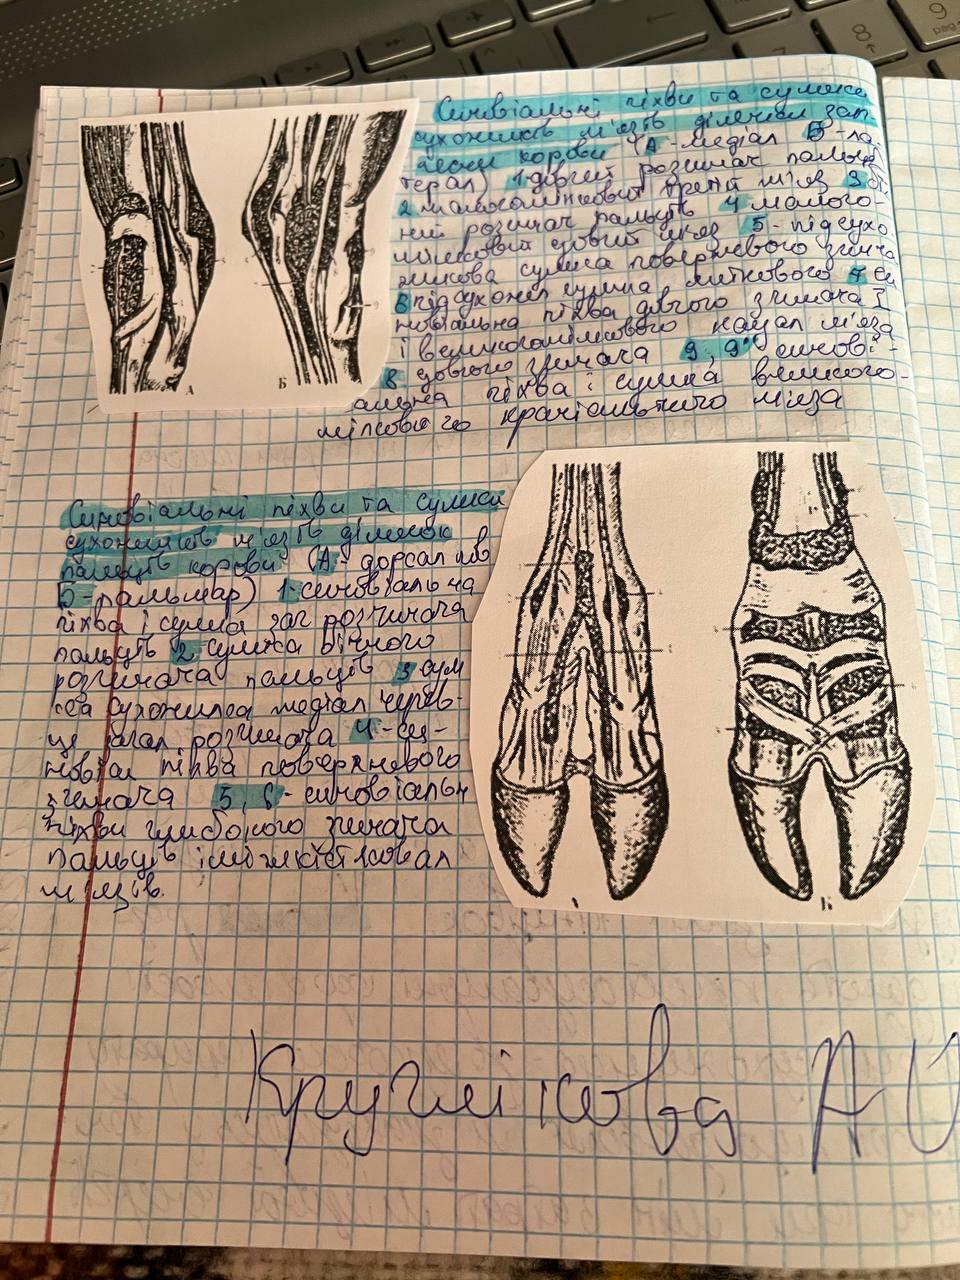 Синовіальні піхви та сумки
сухожилків м'язів ділянки зап
лесни корови (А-медіал Б-ла-
терал) 1-довгий розгинач пальців
2 малогомілковий третій м'яз 3 бі
ний розгинач пальців 4 малого-
мілковий довгий м'яз 5-підсухо
жилкова сумка поверхневого згинача
6 підсухожил сумка литкового 7 си
новіальна піхва довгого згинача І
і великогомілкового каудал м'яза
8 довгого згинача 9, 9' синові-
альна піхва і сумка великого-
мілкового краніального м'яза
Синовіальні піхви та сумки
сухожилків м'язів ділянок
пальців корови (А - дорсал пов
Б-пальмар) 1-синовіальна
піхва і сумка заг розгинача
пальців 2 сумка бічного
розгинача пальців 3 сум
ка сухожилка медіал черев-
ця загал розгинача 4-си-
новіал піхва поверхневого
згинача 5, 6-синовіальн
піхви глибокого згинача
пальців і міжкістковал
м'язів.
А
Б
Б
Кругліковa А